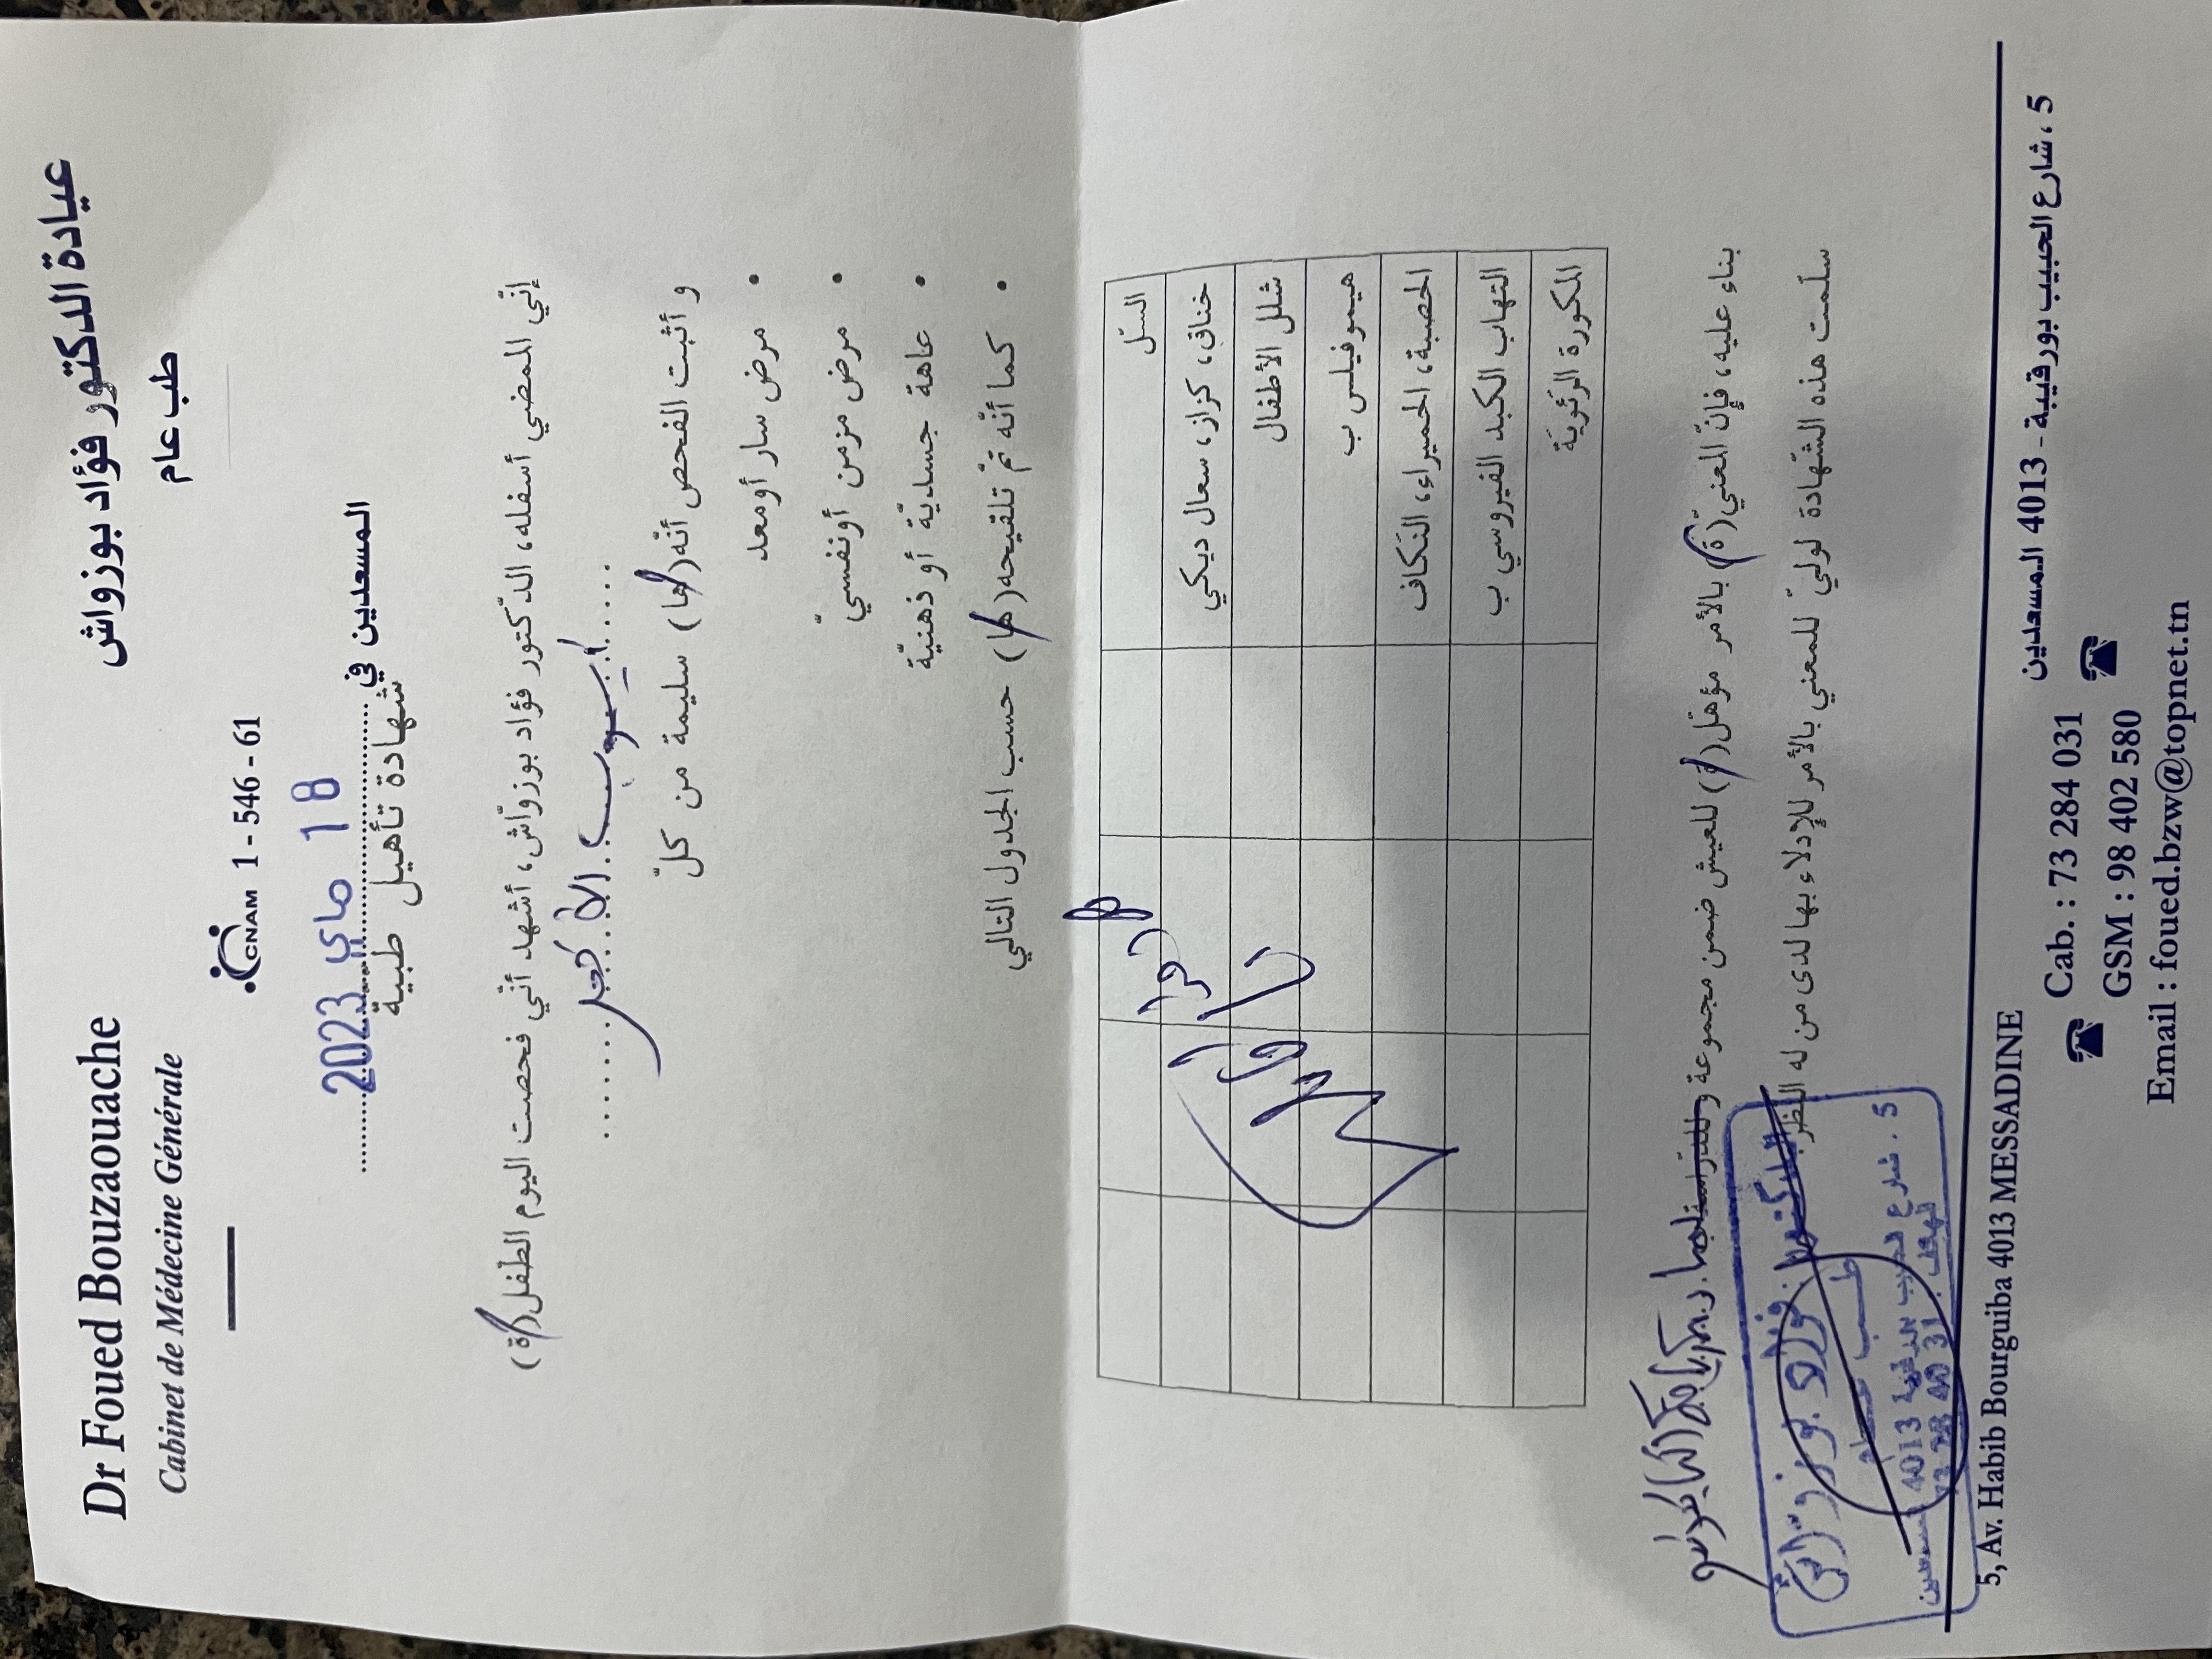 Dr Foued Bouzaouache
Cabinet de Médecine Générale
عيادة الدكتور فؤاد بوزواش
طب عام
CNAM 1 - 546 - 61
المسعدين في 18 ماي 2023
شهادة تأهيل طبية
إنّي الممضي أسفله، الدّكتور فؤاد بوزوّاش، أشهد أنّي فحصت اليوم الطّفل(ة)
أيوب الأكحل
و أثبت الفحص أنّه(ها) سليمة من كلّ
• مرض سار أو معد
• مرض مزمن أو نفسيّ
• عاهة جسديّة أو ذهنيّة
• كما أنّه تمّ تلقيحه(ها) حسب الجدول التالي
السّل
خناق، كزاز، سعال ديكي
شلل الأطفال
هيموفيلس ب
الحصبة، الحميراء، النّكاف
التهاب الكبد الفيروسي ب
المكورة الرّئويّة
بناء عليه، فإنّ المعنيّ(ة) بالأمر مؤهّل(ة) للعيش ضمن مجموعة و
سلّمت هذه الشّهادة لوليّ للمعني بالأمر للإدلاء بها لدى من له النّظر
الدكتور فؤاد بوزواش
طب عام
5 ، شارع الحبيب بورقيبة 4013 المسعدين
5, Av. Habib Bourguiba 4013 MESSADINE
5 ، شارع الحبيب بورقيبة - 4013 المسعدين
☎ Cab. : 73 284 031 ☎
GSM : 98 402 580
Email : foued.bzw@topnet.tn